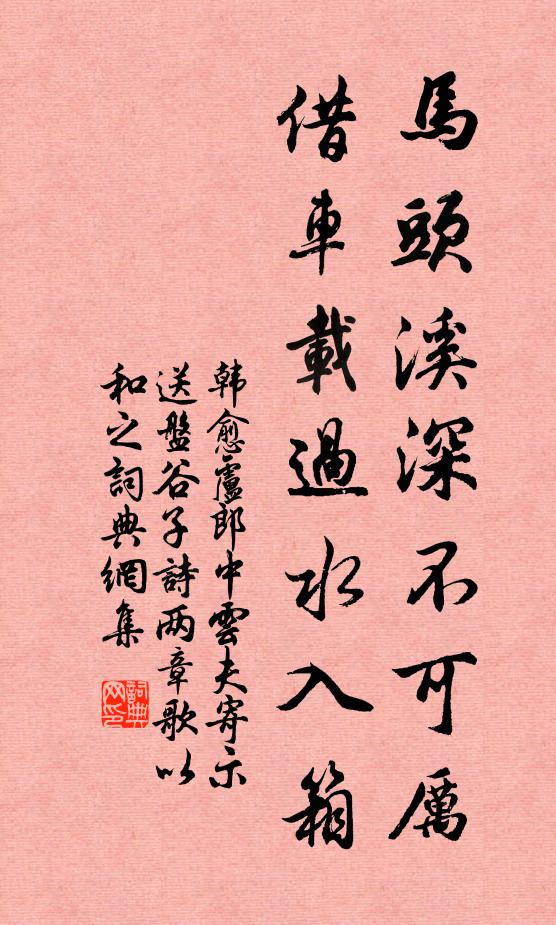 馬頭溪深不可厲
借車載過水入箱
韩愈盧郎中雲夫寄示
送盤谷子詩两章歌以
和之詞典網集
詞典网印